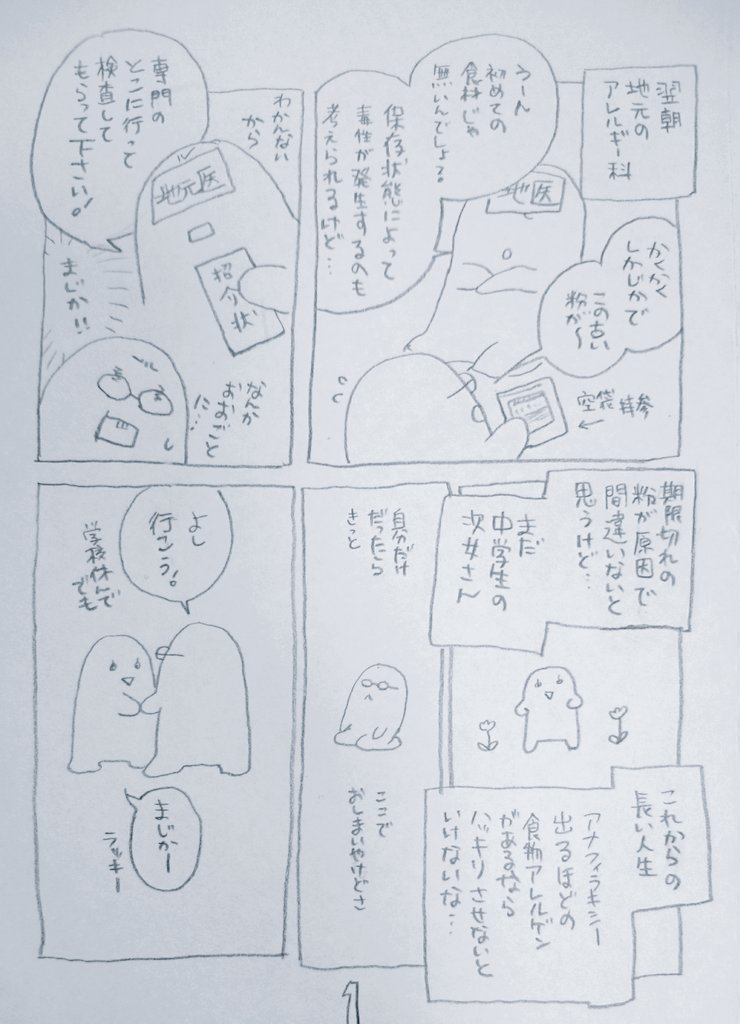 翌朝
地元の
アレルギー科
うーん
初めての
食材じゃ
無いんでしょう?
保存状態によって
毒性が発生するのも
考えられるけど…
地医
かくかく
しかじかで
この古い
粉が〜
空袋持参
わかんない
から
専門の
とこに行って
検査して
もらって下さい!
地元医
紹介状
まじか!!
なんか
おおごと
に…
期限切れの
粉が原因で
間違いないと
思うけど…
まだ
中学生の
次女さん
これからの
長い人生
アナフィラキシー
出るほどの
食物アレルゲン
があるなら
ハッキリさせないと
いけないな…
自分だけ
だったら
きっと
ここで
おしまいやけどさ
よし
行こう!
学校休んで
でも
まじかー
ラッキー
1